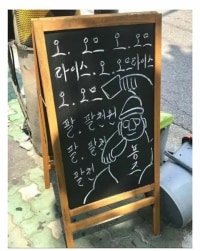 오. 오므 오. 오므
라이스. 오. 오므라이스
오. 오므
팔. 팔천원
팔. 팔천
팔천
봉